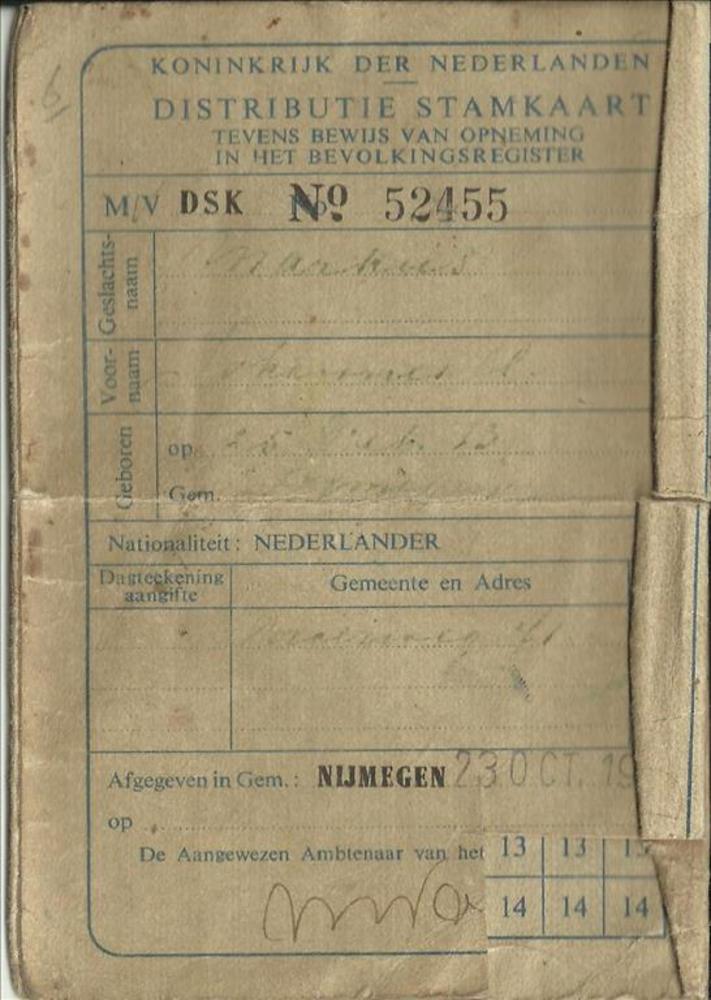 KONINKRIJK DER NEDERLANDEN
DISTRIBUTIE STAMKAART
TEVENS BEWIJS VAN OPNEMING
IN HET BEVOLKINGSREGISTER
M/V DSK No 52455
Geslachts-
naam
Voor-
naam
Geboren
op 25
Gem.
Nationaliteit : NEDERLANDER
Dagteekening
aangifte
Gemeente en Adres
Afgegeven in Gem. : NIJMEGEN 23 OCT. 19
op
De Aangewezen Ambtenaar van het
13 13 13
14 14 14